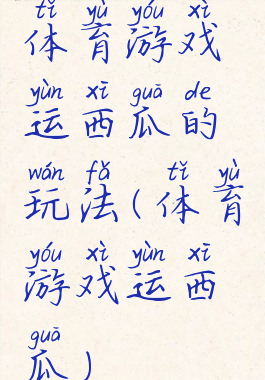 tǐ yù yóu xì
体育游戏
yùn xī guā de
运西瓜的
wán fǎ tǐ yù
玩法(体育
yóu xì yùn xī
游戏运西
guā
瓜)